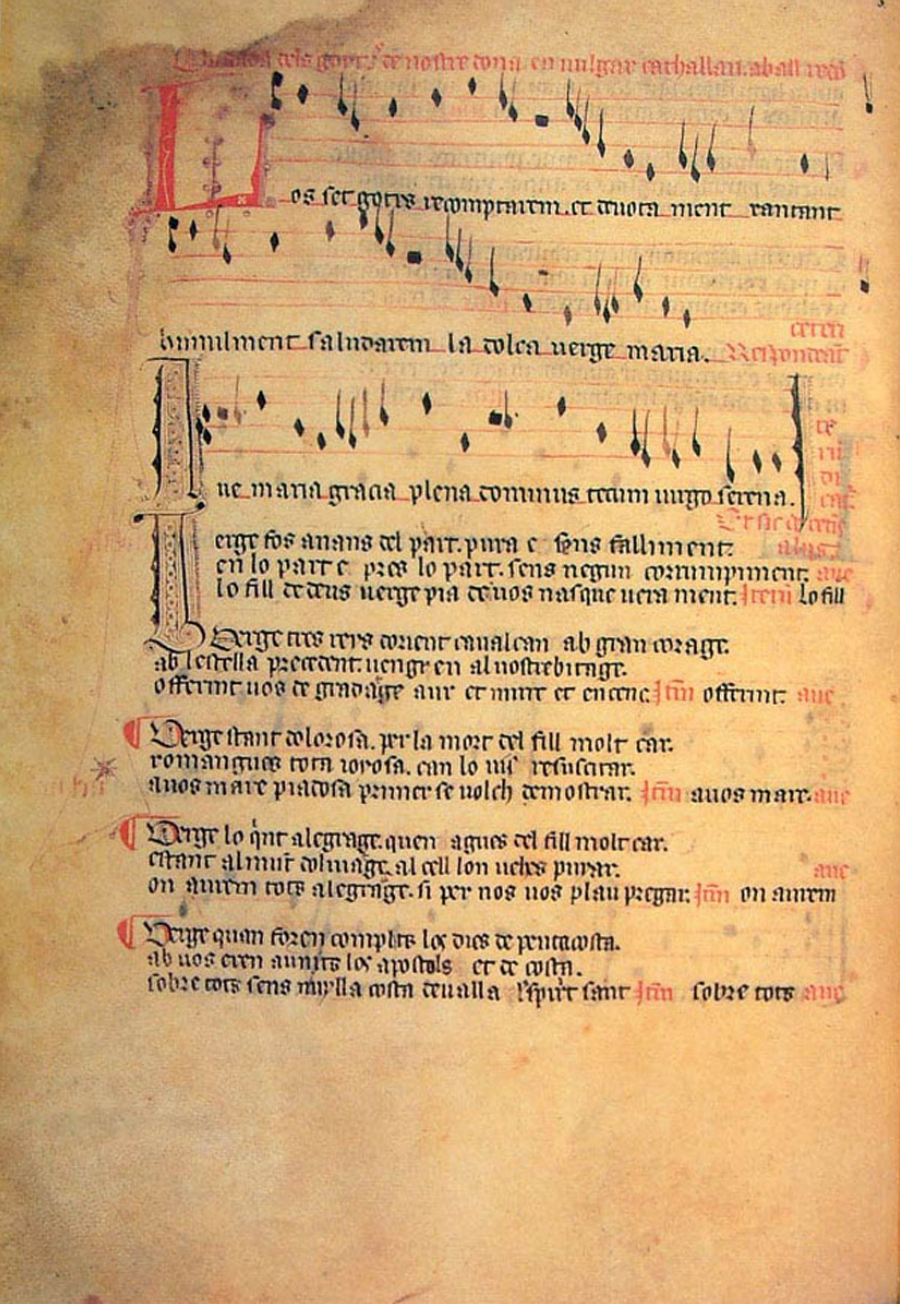 Ballada dels goytx de nostre dona en vulgar cathallan. a ball redo
Los set gotxs recomptarem. et deuota ment xantant
humilment saludarem la dolca uerge maria.
ceteri
Respondeant
Aue maria gracia plena dominus tecum uirgo serena.
Et sic de ceteris
aliis
Verge fos anans del part. pura e sens falliment.
en lo part e pres lo part. sens negun corrumpiment. aue
lo fill de deus uerge pia de uos nasque uera ment. Item lo fill
Verge tres reys dorient caualcan ab gran corage.
ab lestella precedent. uengren al uostre bitage.
offerint uos de gradatge aur et mirre et encenc. Itm offerint. aue
Verge stant dolorosa. per la mort del fill molt car.
romangues tota ioyosa. can lo uis resuscitar.
auos mare piadosa primer se uolch demostrar. Itm auos mare. aue
Verge lo qint alegrage. quen agues del fill molt car.
estant al munt doliuatge. al cell lon uehes puyar.
aue
on aurem tots alegratge. si per nos uos plau pregar. Itm on aurem
Verge quan foren complits los dies de pentacosta.
ab uos eren aunits los apostols et de costa.
sobre tots sens nuylla costa deualla lspirit sant Itm sobre tots aue